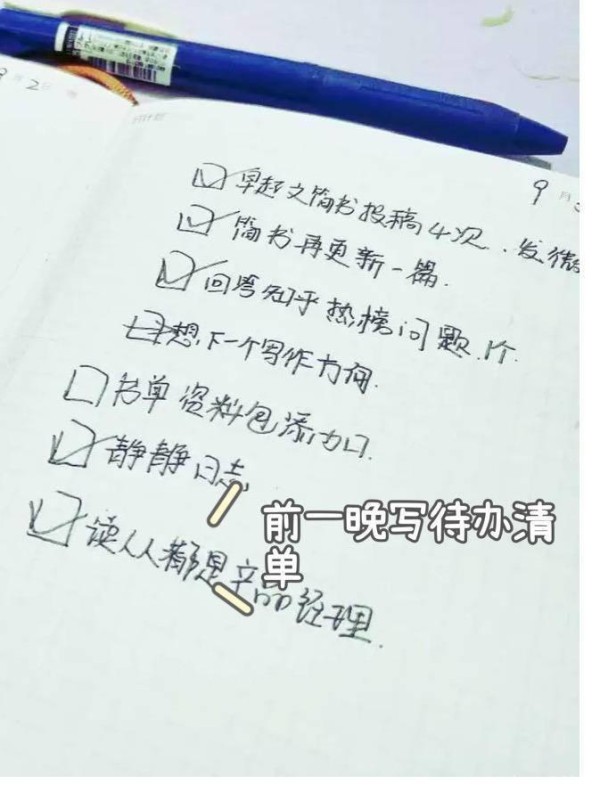 9月
早起文简书投稿4次.发微
简书再更新一篇.
回答知乎热榜问题.1个.
想下一个写作方向.
书单资料包添加.
静静日志
前一晚写待办清
单
读人人都是产品经理.